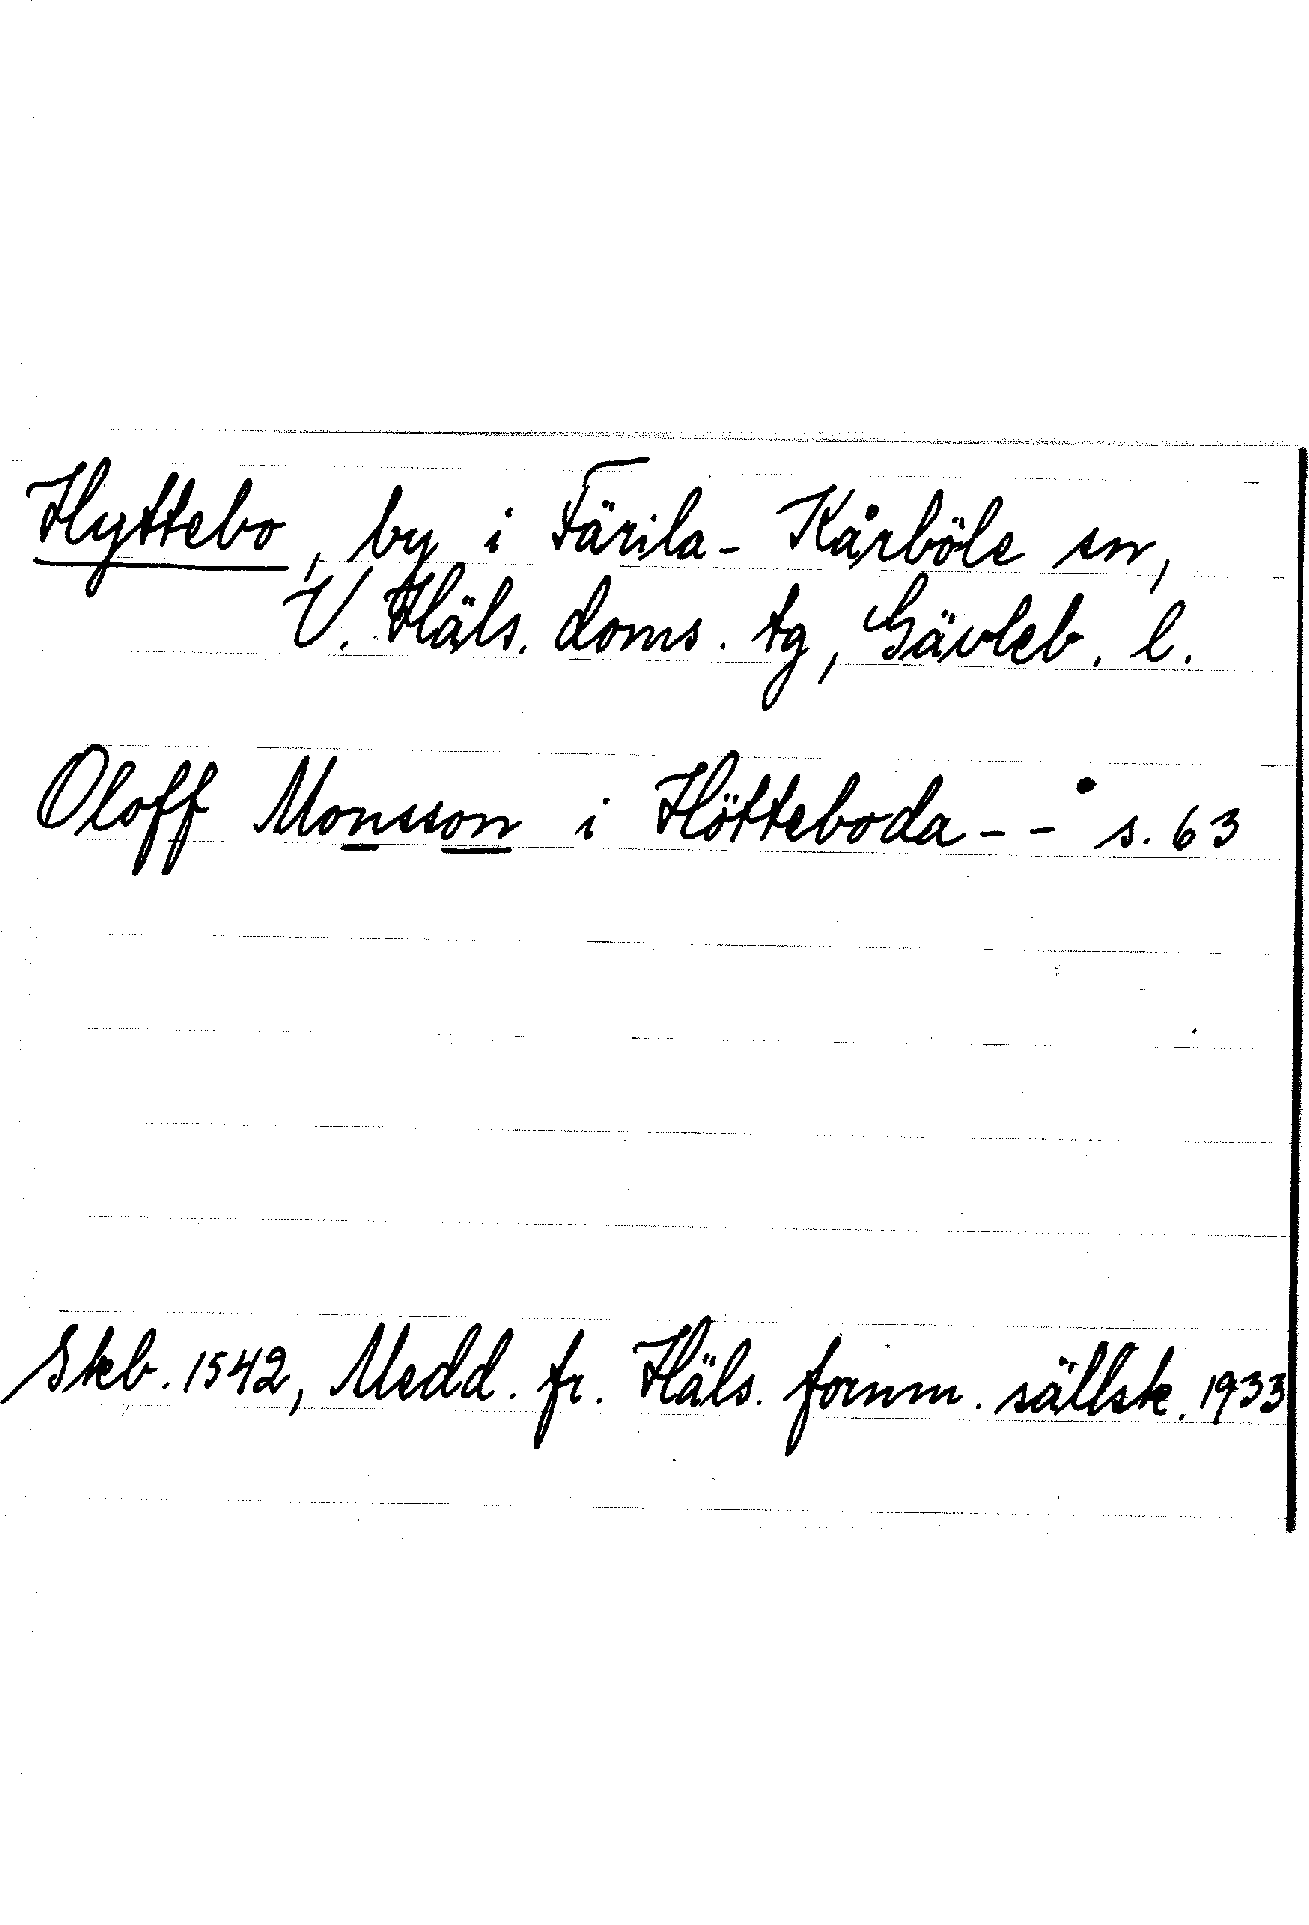 Hyttebo, by i Färila-Kårböle sn,
V. Häls. doms. tg, Gävleb. l.
Oloff Monsson i Hötteboda - - s. 63
Skb. 1542, Medd. fr. Häls. fornm. sällsk. 1933